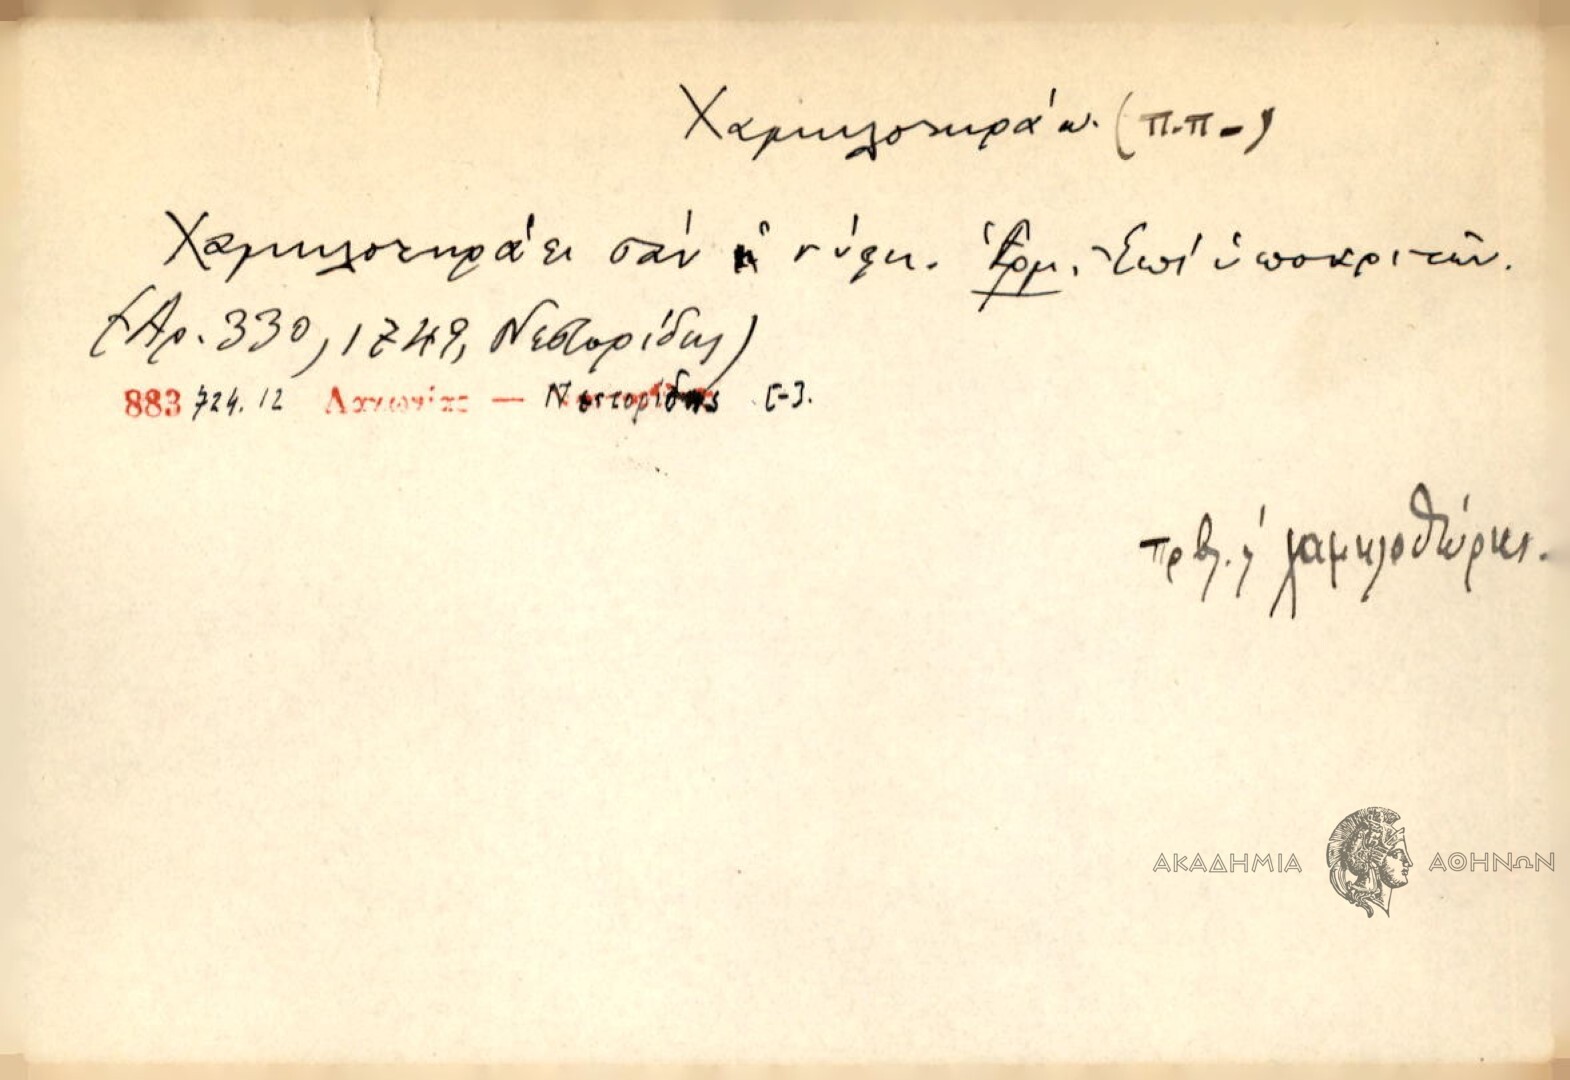 Χαμηλοτηράω. (π.π-)
Χαμηλοτηράει σάν ἡ νύφη. Ἑρμ. Ἐπί ὑποκριτῶν.
(Αρ. 330, 1749, Νεστορίδης)
883 724.12 Λακωνίας — Νεστορίδης [-].
πρβλ. ἡ χαμηλοθώρης.
ΑΚΑΔΗΜΙΑ ΑΘΗΝΩΝ